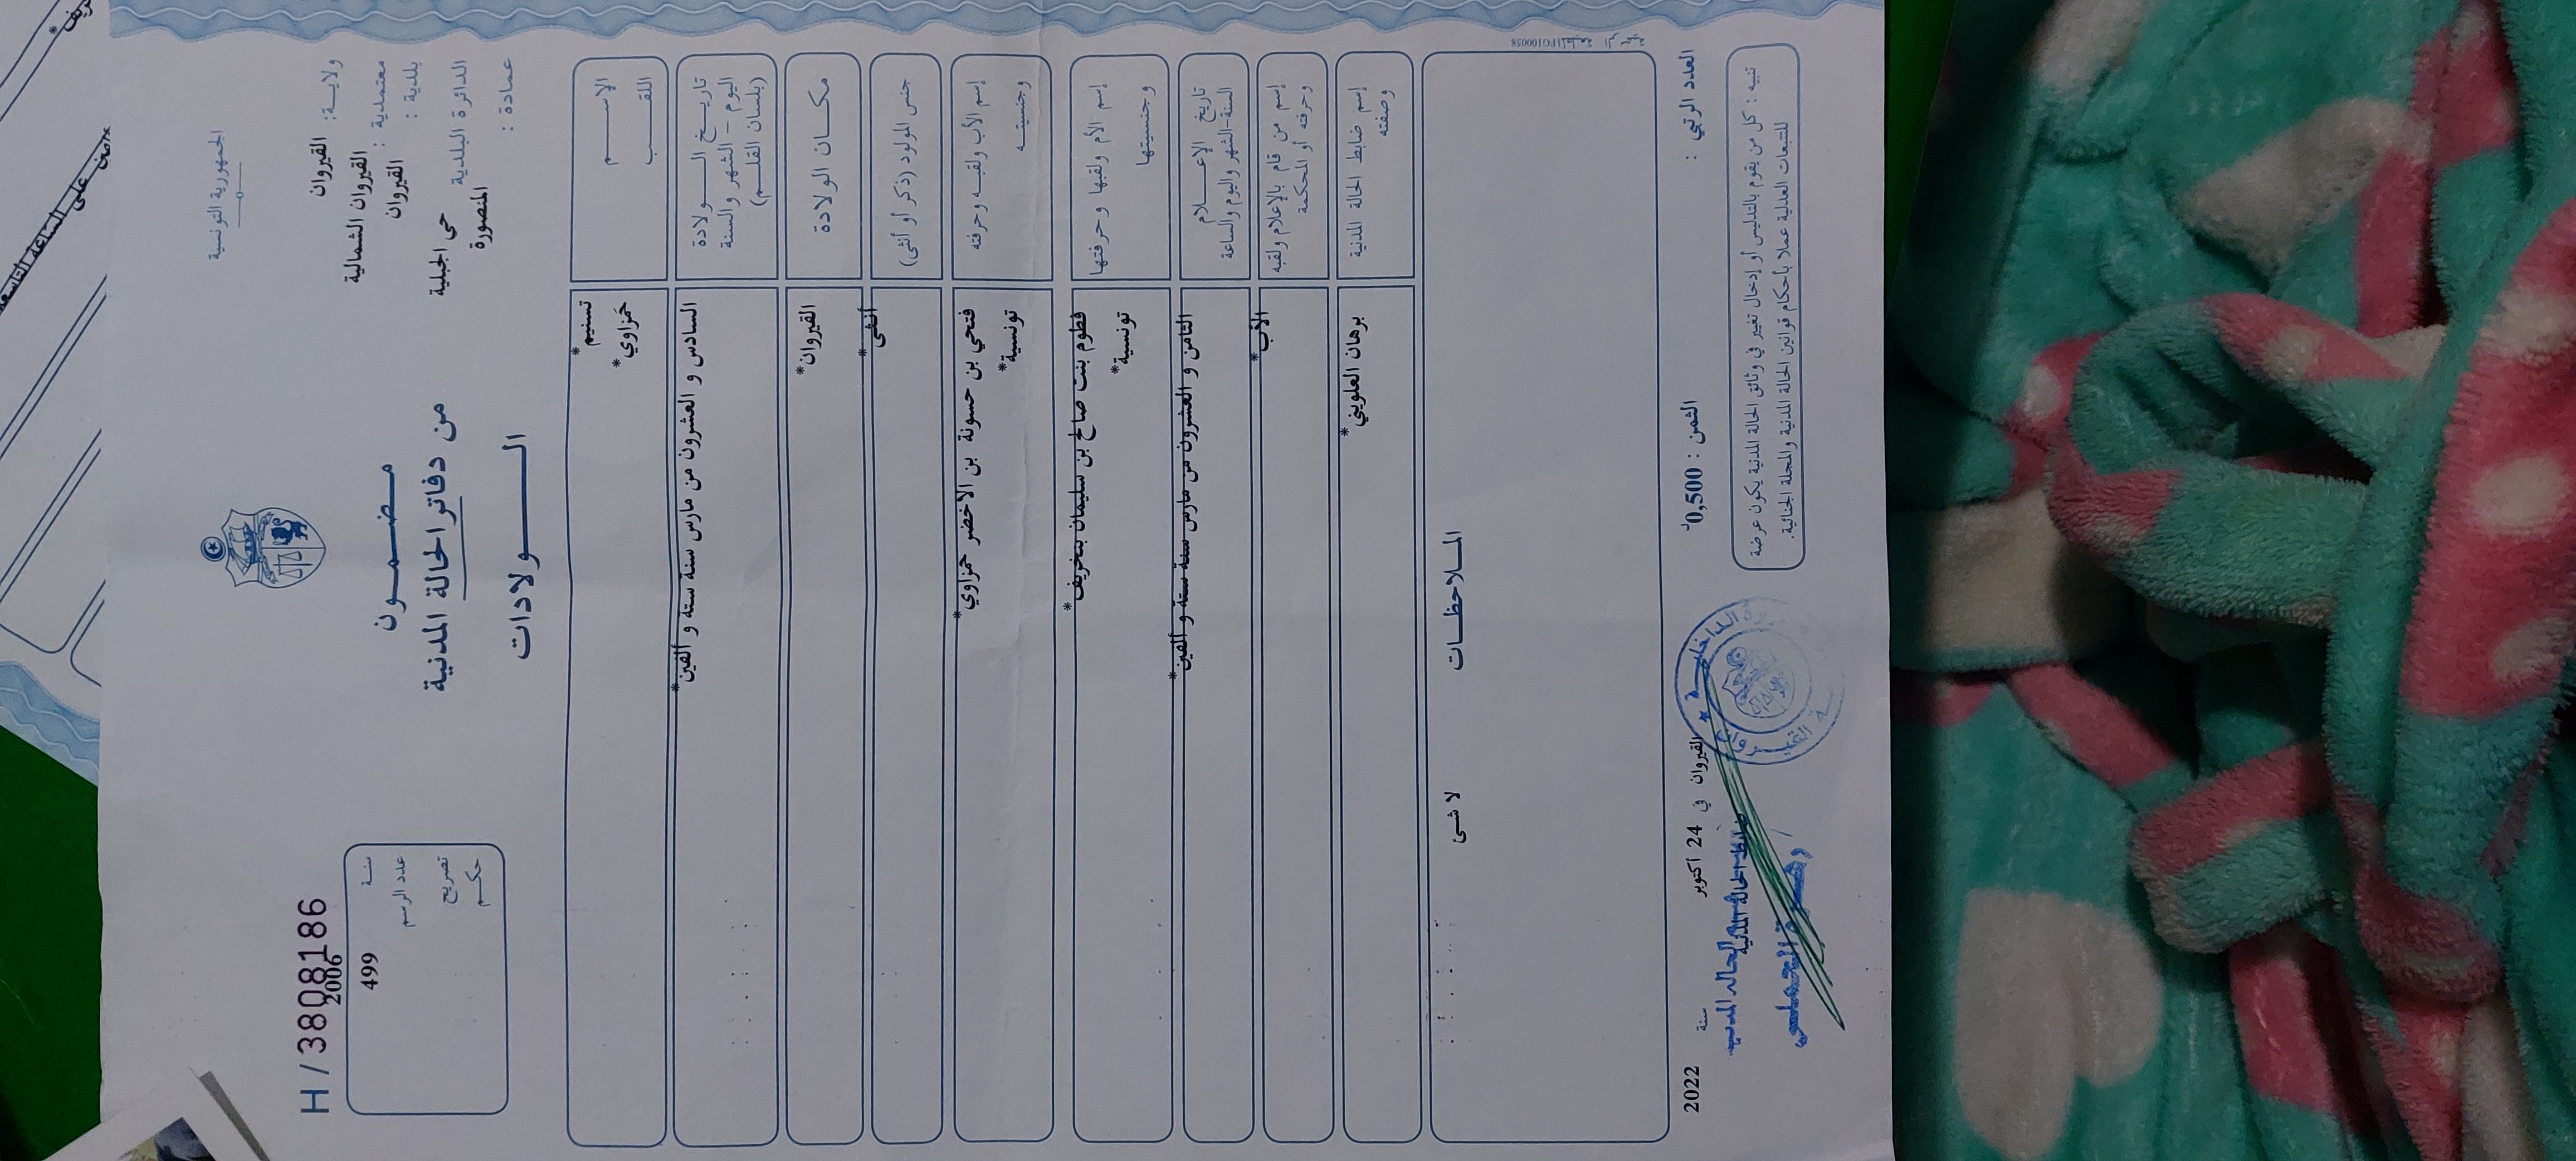 الجمهورية التونسية
ولاية: القيروان
معتمدية : القيروان الشمالية
بلدية : القيروان
الدائرة البلدية حي الجبلية
عمادة : المنصورة
مضمون
من دفاتر الحالة المدنية
الولادات
H / 38081186
2006
سنة
499
عدد الرسم
تصريح
حكم
الإسم
تسنيم*
اللقب
حمزاوي*
تاريخ الولادة
اليوم - الشهر والسنة
(بلسان القلم)
السادس و العشرون من مارس سنة ستة و ألفين*
مكان الولادة
القيروان*
جنس المولود (ذكر أو أنثى)
أنثى*
إسم الأب ولقبه وحرفته
فتحي بن حسونة بن الاخضر حمزاوي*
وجنسيته
تونسية*
إسم الأم ولقبها وحرفتها
فطوم بنت صالح بن سليمان بنخريف*
وجنسيتها
تونسية*
تاريخ الإعلام
السنة-الشهر واليوم والساعة
الثامن و العشرون من مارس سنة ستة و ألفين*
إسم من قام بالإعلام ولقبه
وحرفته أو المحكمة
الأب*
إسم ضابط الحالة المدنية
وصفته
برهان العلويني*
الملاحظات
لا شئ
العدد الرتبي :
الثمن : 0,500د
القيروان في 24 اكتوبر سنة 2022
ضابط الحالة المدنية
تنبيه : كل من يقوم بالتدليس أو إدخال تغيير في وثائق الحالة المدنية يكون عرضة
للتتبعات العدلية عملا بأحكام قوانين الحالة المدنية والمجلة الجنائية.